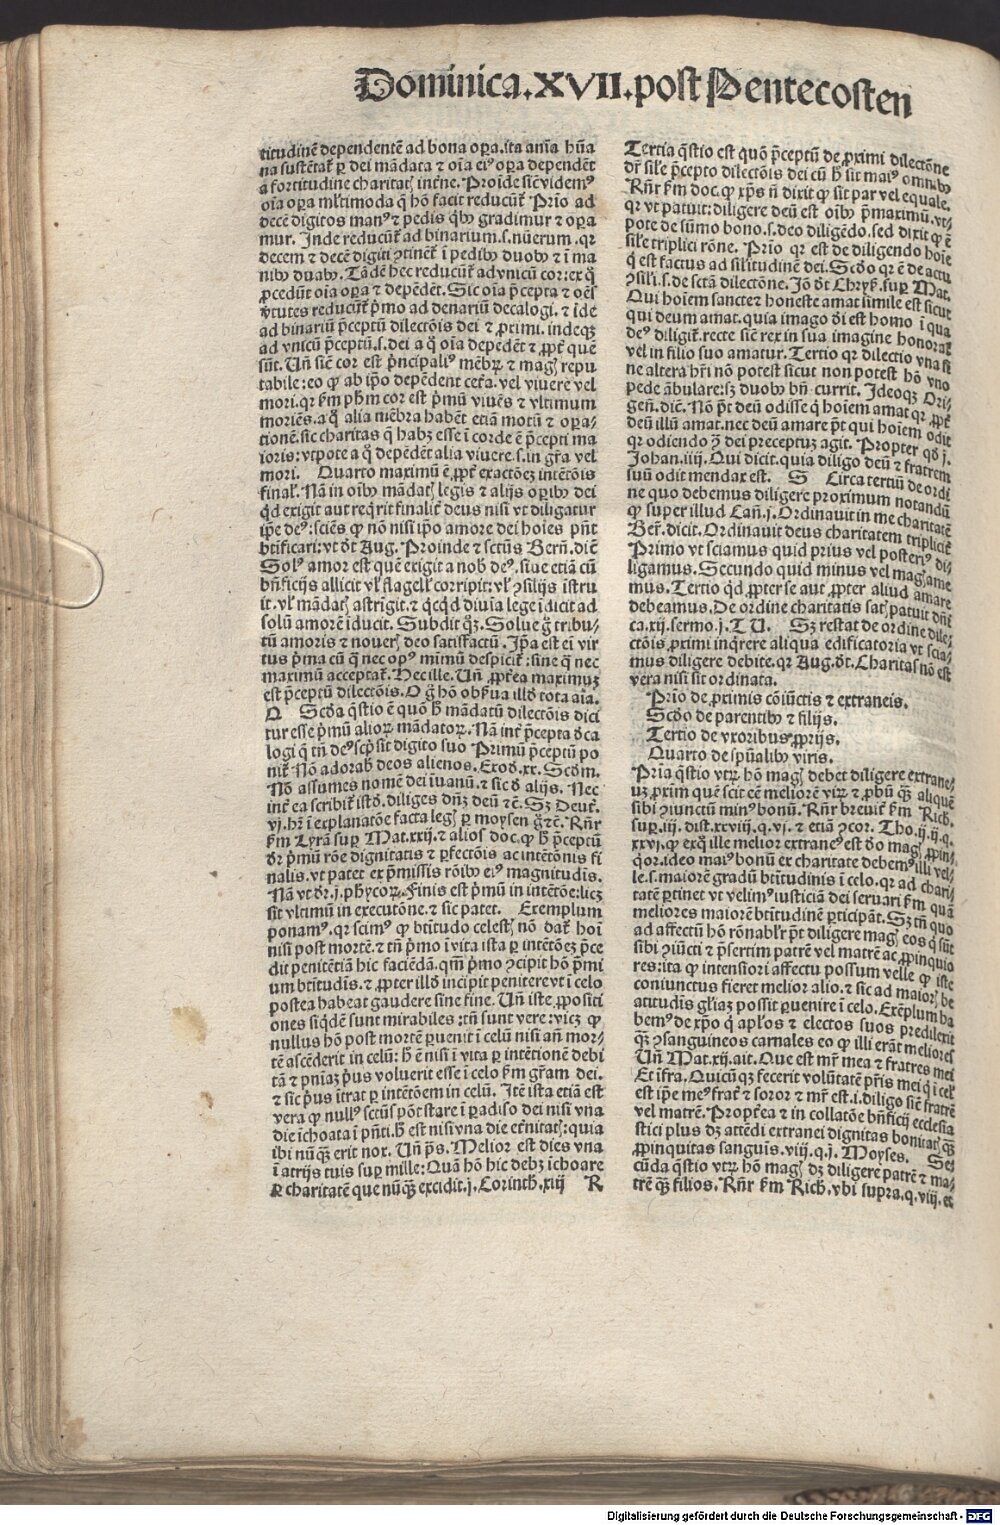 Dominica.XVII.post Pentecosten
titudinē dependentē ad bona oꝑa.ita anīa hūa
na sustētat᷑ ꝑ dei mādata ⁊ oīa eiꝰ oꝑa dependēt
a fortitudine charitatꝭ int̄ne. Proīde sič videmꝰ
oīa oꝑa ml̄timoda q̄ hō facit reducūt᷑ Prīo ad
decē digitos manꝰ ⁊ pedis q̄bꝰ gradimur ⁊ oꝑa
mur. Inde reducūt᷑ ad binarium.s.nūerum.qꝛ
decem ⁊ decē digiti ꝯtinēt᷑ ī pedibꝰ duobꝰ ⁊ ī ma
nibꝰ duabꝰ. Tādē hec reducūt᷑ ad vnicū cor: ex q̊
ꝓcedūt oīa oꝑa ⁊ depēdēt. Sic oīa p̄cepta ⁊ oēs
v̄tutes reducūt᷑ p̄mo ad denariū decalogi. ⁊ īde
ad binariū p̄ceptū dilectōis dei ⁊ ꝓximi. indeqꝫ
ad vnicū p̄ceptū.s.dei a q̊ oīa depēdēt ⁊ ꝓpt̄ quē
sūt. Uñ sič cor est p̄ncipaliꝰ mēbꝝ ⁊ magꝭ repu
tabile: eo ꝙ ab ip̄o depēdent cet̄a. vel viuere vel
mori. qꝛ ẜm ph̄m cor est p̄mū viuēs ⁊ vltimum
moriēs. a q̊ alia mēbra habēt etiā motū ⁊ oꝑa-
tionē. sic charitas q̄ habꝫ esse ī corde ē p̄cepti ma
ioris: vtpote a q̊ depēdēt alia viuere.s.in gr̄a vel
mori. Quarto maximū ē ꝓpt̄ exactōeꝫ intētōis
final᷑. Nā in oībꝰ mādatꝭ legis ⁊ alijs oꝑibꝰ dei
qd̄ exigit aut req̄rit finalit̄ deus nisi vt diligatur
ip̄e deꝰ: sciēs ꝙ nō nisi ip̄o amore dei hoīes pn̄t
btīficari: vt dt̄ Aug. Proinde ⁊ sctūs Berñ. dič
Solꝰ amor est quē exigit a nob̄ deꝰ. siue etiā cū
bn̄ficijs allicit vl̄ flagell᷑ corripit: vl̄ ꝯsilijs īstru
it. vl̄ mādatꝭ astrīgit. ⁊ qcqd̄ diuīa lege īdicit ad
solū amorē īducit. Subdit qꝫ. Solue g̊ tribu-
tū amoris ⁊ nouerꝭ deo satisfactū. Ip̄a est eī vir
tus p̄ma cū q̄ nec opꝰ mīmū despicit᷑: sine q̄ nec
maximū acceptat᷑. Hec ille. Uñ ꝓpt̄ea maximuꝫ
est p̄ceptū dilectōis. O g̊ hō obẜua illd̄ tota aīa.
Q Scd̄a q̄stio ē quō h̄ mādatū dilectōis dici
tur esse p̄mū alioꝝ mādatoꝝ. Nā int̄ p̄cepta d̄ca
logi q̄ tn̄ deꝰ scp̄sit digito suo Primū p̄ceptū po
nit᷑ Nō adorab̄ deos alienos. Exod̄.xx. Scd̄m.
Nō assumes nomē dei īuanū. ⁊ sic d̄ alijs. Nec
int̄ ea scribit᷑ istd̄. diliges dn̄ꝫ deū ⁊č. Sꝫ Deut᷑.
vj. hr̄ ī explanatōe facta legꝭ ꝑ moysen g̊ ⁊č. Rn̄r
ẜm Lyrā suꝑ Mat.xxij. ⁊ alios doc. ꝙ h̄ p̄ceptū
dr̄ p̄mū rōe dignitatis ⁊ ꝑfectōis ac intētōnis fi
nalis. vt patet ex p̄missis rōibꝰ eiꝰ magnitudīs.
Nā vt dr̄.j.phycoꝝ. Finis est p̄mū in intētōe: licꝫ
sit vltimū in executōne. ⁊ sic patet. Exemplum
ponamꝰ. qꝛ scimꝰ ꝙ btītudo celestꝭ nō dat᷑ hoī
nisi post mortē. ⁊ tn̄ p̄mo ī vita ista ꝑ intētōeꝫ p̄ce
dit penitētiā hic faciēdā. qm̄ p̄mo ꝯcipit hō p̄mi
um btītudīs. ⁊ ꝓpter illd̄ incipit penitere vt ī celo
postea habeat gaudere sine fine. Uñ iste ꝓpositi
ones siqdē sunt mirabiles: tn̄ sunt vere: vicꝫ ꝙ
nullus hō post mortē ꝑuenit ī celū nisi an̄ mor-
tē ascēderit in celū: h̄ ē nisi ī vita ꝑ intētionē debi
tā ⁊ pn̄iaꝫ p̄us voluerit esse ī celo ẜm gr̄am dei.
⁊ sic p̄us ītrat ꝑ intētōem in celū. Itē ista etiā est
vera ꝙ nullꝰ sctūs pōt stare ī ꝑadiso dei nisi vna
die īchoata ī pn̄ti. h̄ est nisi vna die et̄nitatꝭ: quia
ibi nūqꝫ erit nox. Uñ ps̄. Melior est dies vna
ī atrijs tuis suꝑ mille: Quā hō hic debꝫ īchoare
ꝑ charitatē que nūqꝫ excidit.j.Corinth.xiij R
Tertia q̄stio est quō p̄ceptū de ꝓximi dilectōne
dr̄ sil̄e p̄cepto dilectōis dei cū h̄ sit maiꝰ omnibꝰ
Rn̄r ẜm doc. ꝙ xp̄s n̄ dixit ꝙ sit par vel equale.
qꝛ vt patuit: diligere deū est oībꝰ p̄maximū. vt-
pote de sūmo bono.s.deo diligēdo. sed dixit ꝙ ē
sil̄e triplici rōne. Prīo qꝛ est de diligendo hoīe
q̄ est factus ad sil̄itudinē dei. Scd̄o qꝛ ē de actu
ꝯsil̄i.s.de sctā dilectōne. Jō dt̄ Chryẜ. suꝑ Mat.
Qui hoīem sancte ⁊ honeste amat simile est sicut
qui deum amat. quia imago d̄i est homo ī qua
deꝰ diligit᷑. recte sič rex in sua imagine honorat᷑
vel in filio suo amatur. Tertio qꝛ dilectio vna si
ne altera hr̄i nō potest sicut non potest hō vno
pede ābulare: sꝫ duobꝰ bn̄ currit. Ideoqꝫ Ori-
geñ. dič. Nō p̄t deū odisse q̄ hoīem amat qꝛ ꝓpt̄
deū illū amat. nec deū amare p̄t qui hoīem odit
qꝛ odiendo ꝯ̄ dei preceptuꝫ agit. Propter qd̄ j.
Johan.iiij. Qui dicit. quia diligo deū ⁊ fratrem
suū odit mendax est. S Circa tertiū de ordi
ne quo debemus diligere proximum notandū
ꝙ super illud Cañ.j. Ordinauit in me charitatē
Ber̄. dicit. Ordinauit deus charitatem triplicit̄
Primo vt sciamus quid prius vel posteriꝰ di-
ligamus. Secundo quid minus vel magꝭ ame
mus. Tertio qd̄ ꝓpter se aut ꝓpter aliud amare
debeamus. De ordine charitatis satꝭ patuit dn̄i
ca.xij.sermo.j. T U. Sꝫ restat de ordine dile-
ctōis ꝓximi inq̄rere aliqua edificatoria vt scia-
mus diligere debite. qꝛ Aug.dt̄. Charitas nō est
vera nisi sit ordinata.
Prīo de ꝓximis cōiūctis ⁊ extraneis.
Scd̄o de parentibꝰ ⁊ filijs.
Tertio de vxoribus ꝓprijs.
Quarto de spūalibꝰ viris.
Prīa q̄stio vtꝝ hō magꝭ debet diligere extrane-
uꝫ ꝓxim quē scit cē meliorē virꝝ ⁊ ꝓbū qꝫ aliquē
sibi ꝯiunctū minꝰ bonū. Rn̄r breuit̄ ẜm Rich.
suꝑ.iij.dist.xxviij.q.vj. ⁊ etiā ꝯcor. Tho.ij.ij.q.
xxvj. ꝙ ex q̊ ille melior extraneꝰ est d̄o magꝭ ꝓpin
q̊or. ideo maiꝰ bonū ex charitate debemꝰ illi vel-
le.s.maiorē gradū btītudinis ī celo. qꝛ ad chari-
tatē ꝑtinet vt velimꝰ iusticiā dei seruari ẜm quā
meliores maiorē btītudinē ꝑticipāt. Sꝫ tn̄ quo
ad affectū hō rōnabl̄r p̄t diligere magꝭ eos q̄ sūt
sibi ꝯiūcti ⁊ p̄sertim patrē vel matrē ac ꝓpinquio
res: ita ꝙ intensiori affectu possum velle ꝙ iste
coniunctus fieret melior alio. ⁊ sic ad maiorꝭ be
atitudīs gl̄iaꝫ possit ꝑuenire ī celo. Exēplum ha
bemꝰ de xp̄o q̄ apl̄os ⁊ electos suos predilexit
qꝫ ꝯsanguineos carnales eo ꝙ illi erāt meliores
Uñ Mat.xij.ait. Que est mr̄ mea ⁊ fratres mei
Et īfra. Quicūqꝫ fecerit volūtatē pr̄is mei q̄ ī cel᷑
est ip̄e meꝰ frat᷑ ⁊ soror ⁊ mr̄ est.i.diligo sič fratrē
vel matrē. Propt̄ea ⁊ in collatōe bn̄ficij ecclesia
stici plus dꝫ attēdi extranei dignitas bonitatꝭ qꝫ
ꝓpinquitas sanguīs.viij.q.j.Moyses. Se-
cūda q̄stio vtꝝ hō magꝭ dꝫ diligere patrē ⁊ ma-
trē qꝫ filios. Rn̄r ẜm Rich. vbi supra.q.viij.et
Digitalisierung gefördert durch die Deutsche Forschungsgemeinschaft - DFG